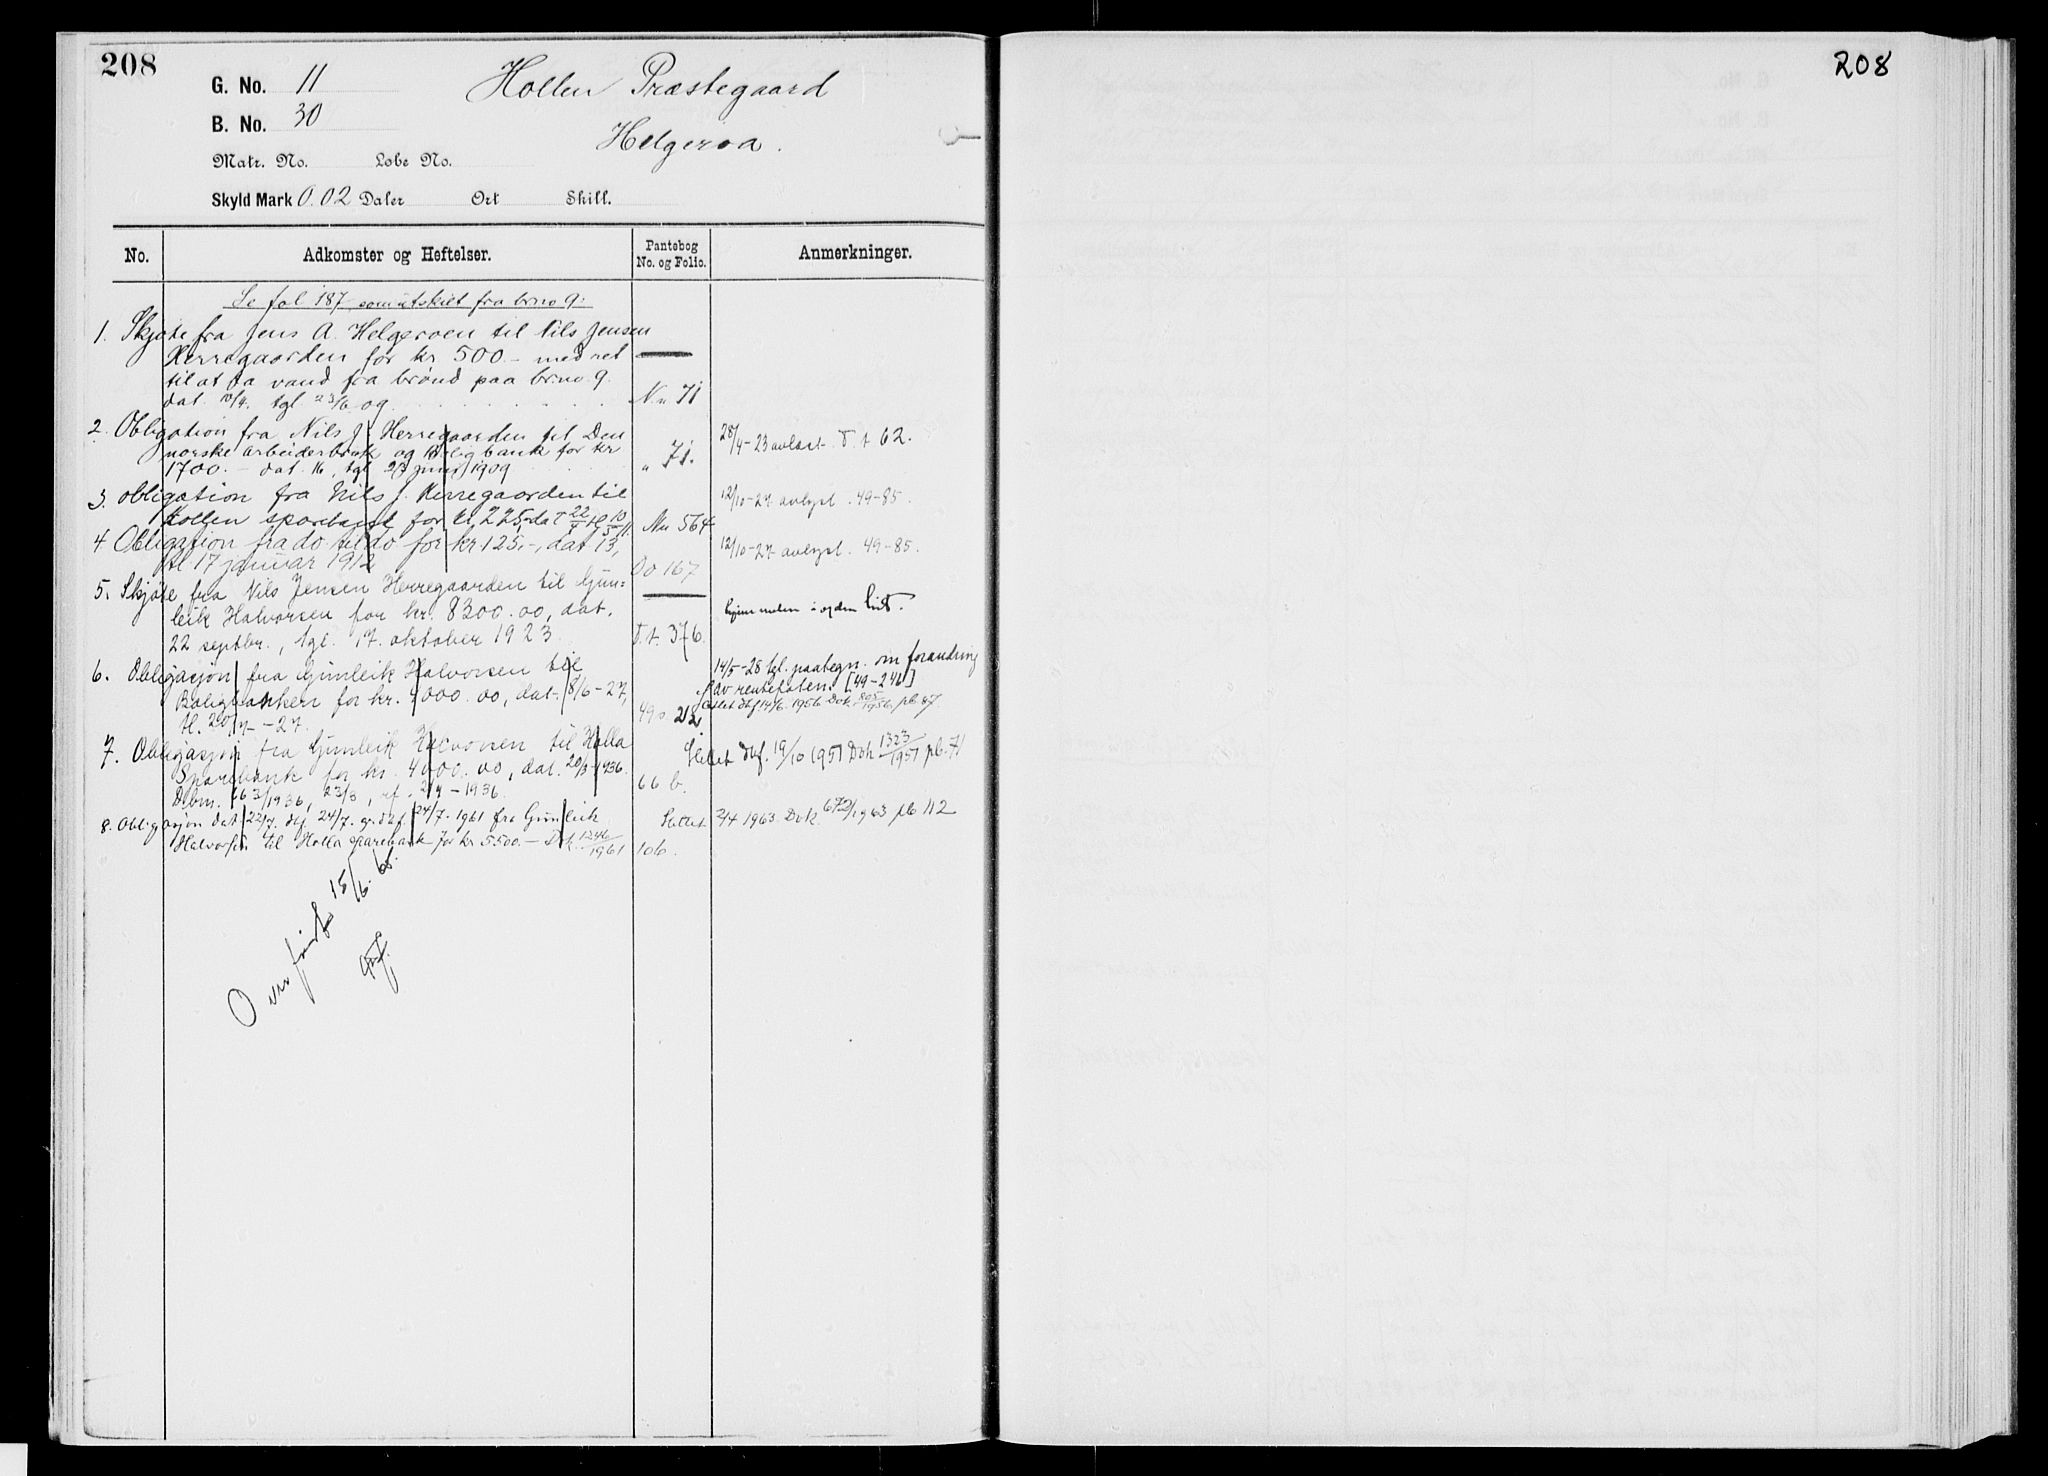 208
G. No. 11 Hollen Præstegaard
B. No. 30 Helgeroa.
Matr. No. Løbe No.
Skyld Mark 0.02 Daler Ort Skill.
No. Adkomster og Heftelser. Pantebog No. og Folio. Anmerkninger.
Se fol 187 som utskilt fra brno 9:
1. Skjøte fra Jens A. Helgeroen til Nils Jensen
Herregaarden for kr 500.- med ret
til at ta vand fra brønd paa br.no. 9.
dat. tgl. 23/6 09 Nn 71
2. Obligation fra Nils J. Herregaarden til Den
norske arbeiderbruk og Boligbank for kr
1700.- dat. 16, tgl 23 juni 1909 " 71. 28/4-23 avlæst T.t 62.
3. obligation fra Nils J. Herregaarden til
Hollen sparebank for kr 225,- dat 22/4 tl 10/5 11. Nn 564 12/10-27 avlyst. 49-85.
4 Obligation fra do til do for kr 125,-, dat 13,
tl 17 januar 1912 Oo 167 12/10-27 avlyst. 49-85.
5. Skjøte fra Nils Jensen Herregaarden til Gun=
leik Halvorsen for kr. 8300.00, dat.
22 septbr., tgl. 17. oktober 1923 T.t. 376. hjemmelen i orden
6. Obligasjon fra Gunleik Halvorsen til
Boligbanken for kr. 4000.00, dat. 8/6-27,
tl. 20/7-27. 49 s 212 14/5-28 tgl. paategn. om forandring
av rentefoten. [49-246]
Slettet dbf. 14/6. 1956 Dok. 805/1956, pb 87.
7. Obligasjon fra Gunleik Halvorsen til Holla
Sparebank for kr. 4000.00, dat. 20/3-1936.
Dbm. 663/1936, 23/3, rf. 2/4-1936. 66 b. Slettet dbf. 19/10 1951 Dok 1323/1951 pb. 71
8. Obligasjon dat. 22/7. dbf 24/7. gr. dat. 24/7. 1961 fra Gunleik
Halvorsen til Holla sparebank for kr 5500.- Dok. 1246/1961 106. Slettet 3/4 1963. Dok. 672/1963 pb 112
Overført 15/6. 65.
208